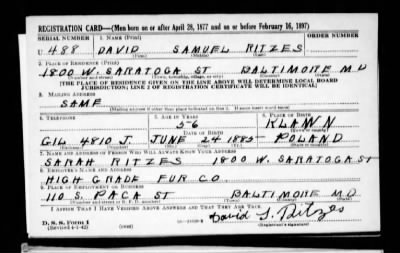 REGISTRATION CARD—(Men born on or after April 28, 1877 and on or before February 16, 1897)
SERIAL NUMBER 1. NAME (Print) ORDER NUMBER
U 488 DAVID SAMUEL RITZES
(First) (Middle) (Last)
2. PLACE OF RESIDENCE (Print)
1800 W. SARATOGA ST BALTIMORE MD
(Number and street) (Town, township, village, or city) (County) (State)
[THE PLACE OF RESIDENCE GIVEN ON THE LINE ABOVE WILL DETERMINE LOCAL BOARD
JURISDICTION; LINE 2 OF REGISTRATION CERTIFICATE WILL BE IDENTICAL]
3. MAILING ADDRESS
SAME
[Mailing address if other than place indicated on line 2. If same insert word same]
4. TELEPHONE 5. AGE IN YEARS 6. PLACE OF BIRTH
56 KLAWN
DATE OF BIRTH
GIL 4810 J JUNE 24 1885 POLAND
7. NAME AND ADDRESS OF PERSON WHO WILL ALWAYS KNOW YOUR ADDRESS
SARAH RITZES 1800 W. SARATOGA ST
8. EMPLOYER'S NAME AND ADDRESS
HIGH GRADE FUR CO.
9. PLACE OF EMPLOYMENT OR BUSINESS
110 S. PACA ST BALTIMORE MD
I AFFIRM THAT I HAVE VERIFIED ABOVE ANSWERS AND THAT THEY ARE TRUE.
D. S. S. Form 1
(Revised 4-1-42) (over)
David S. Ritzes
(Registrant's signature)